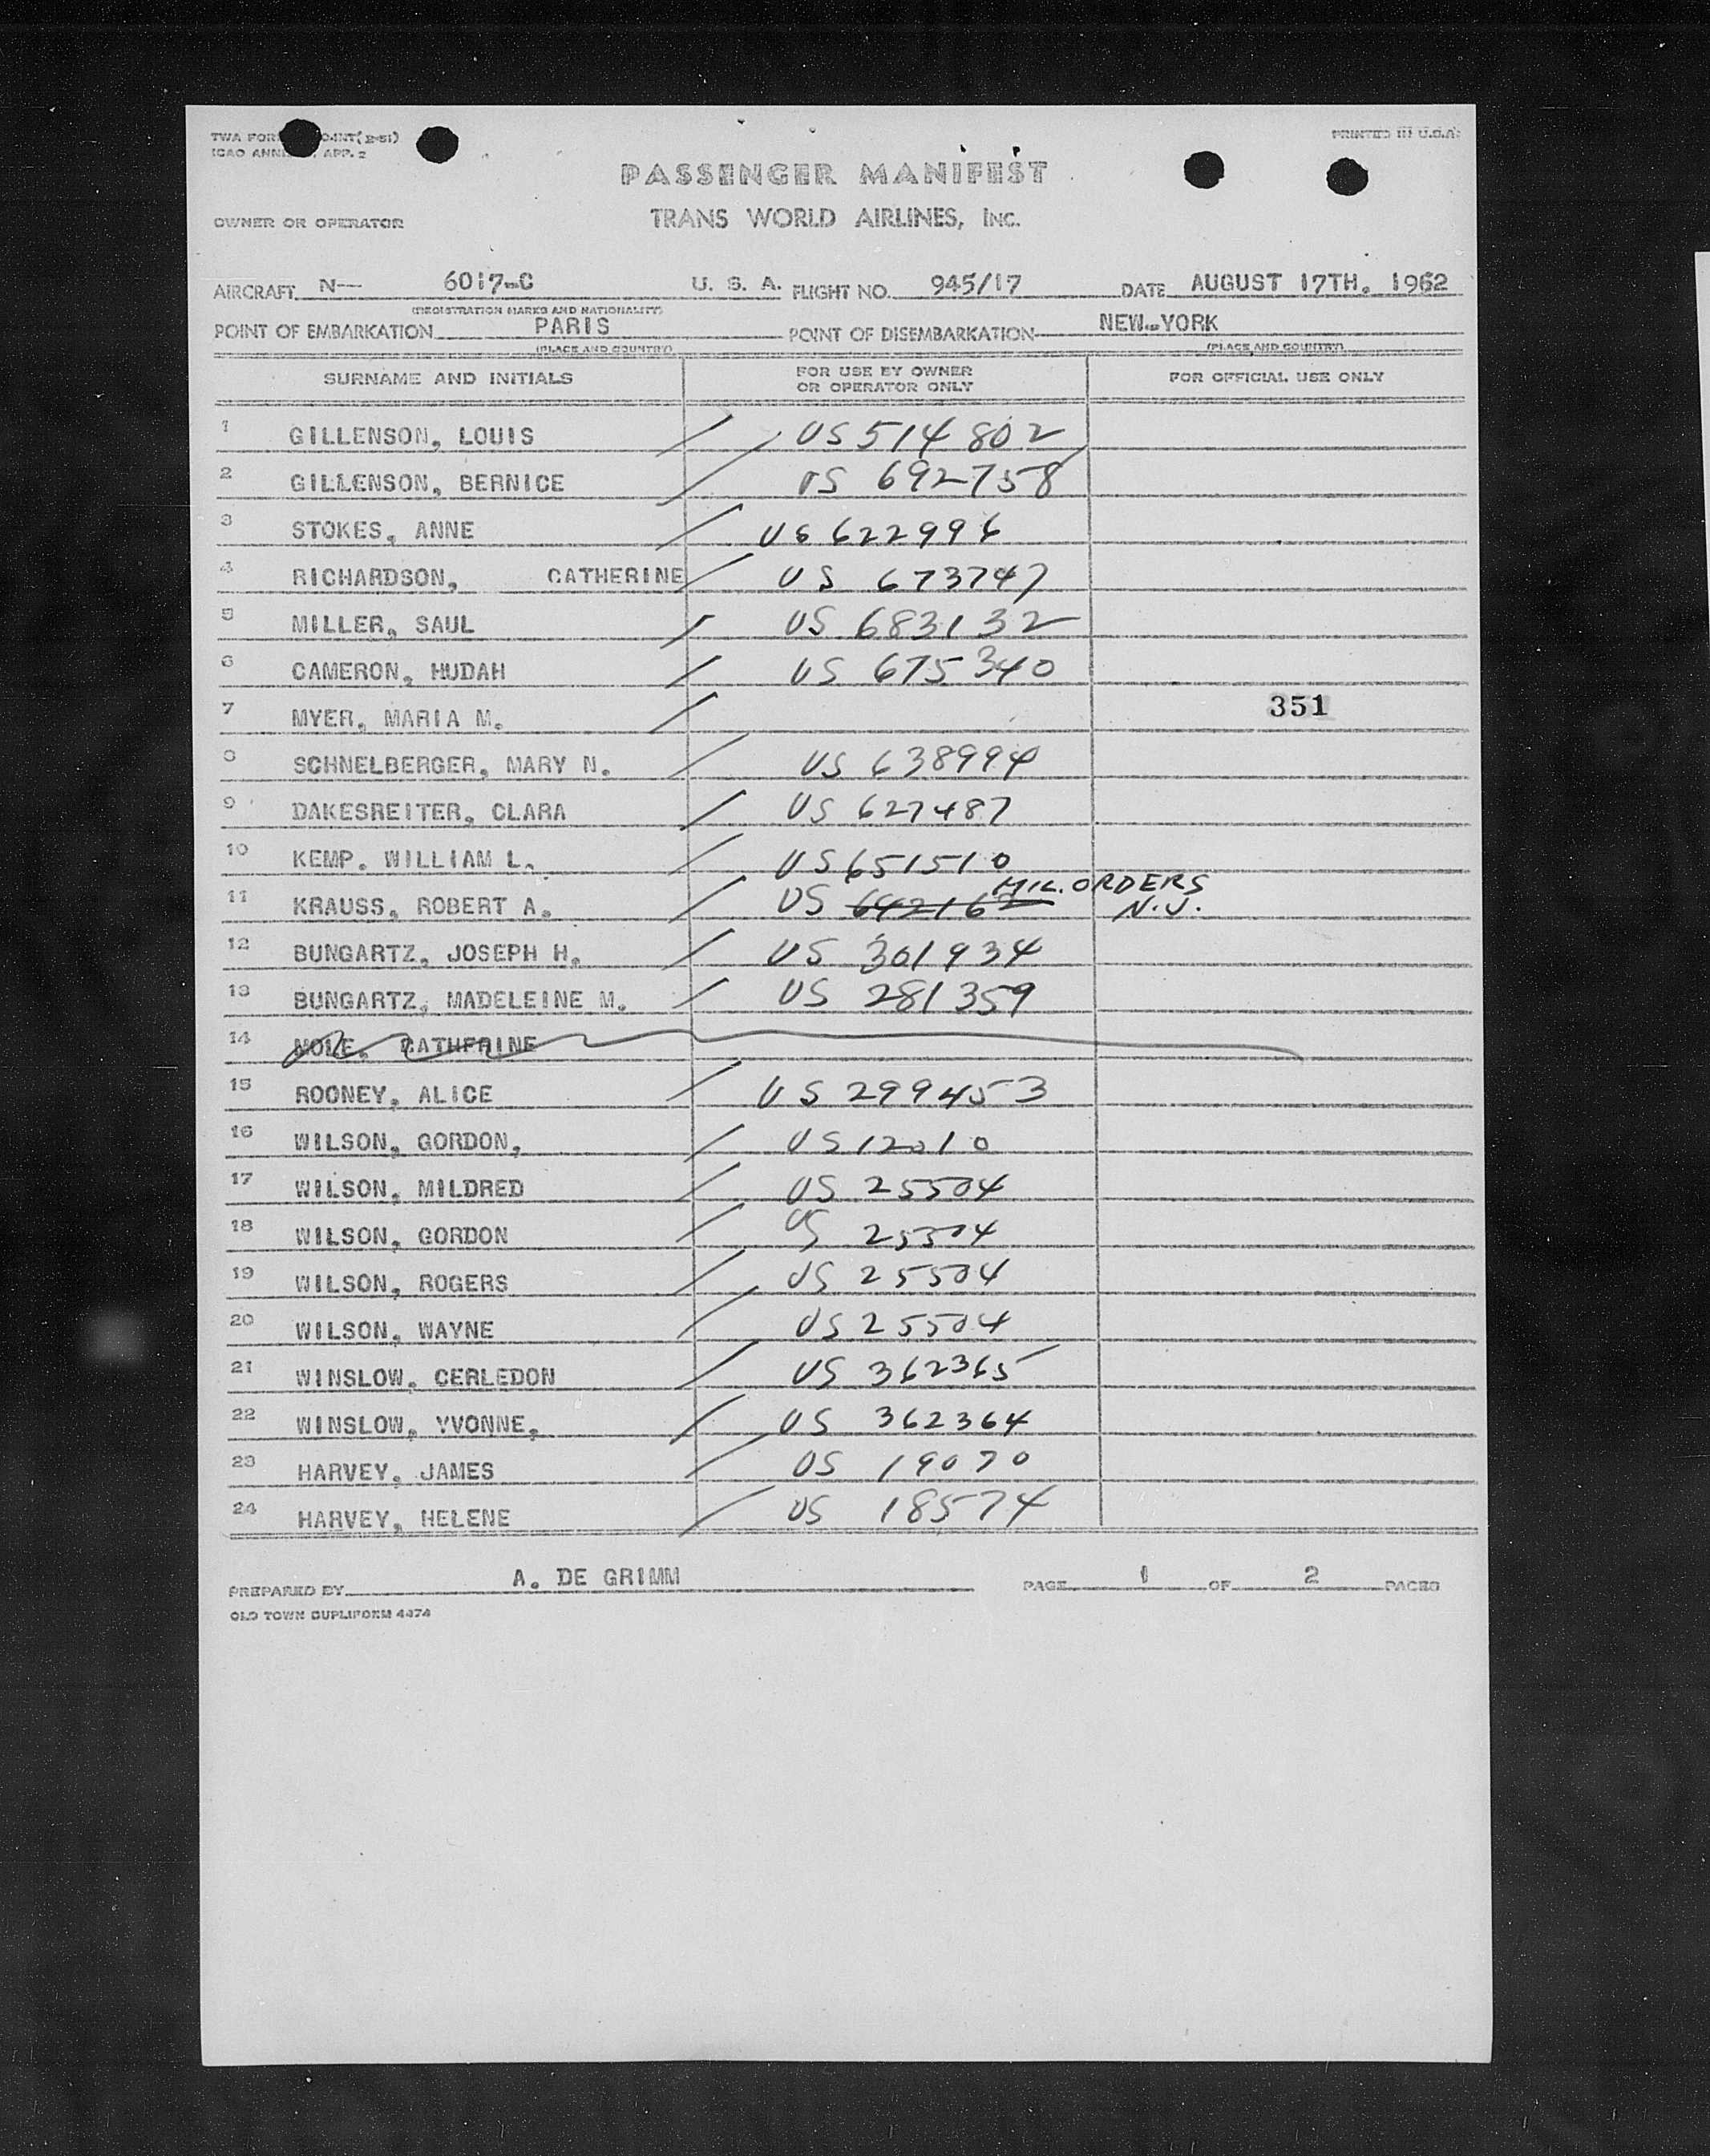 TWA FORM POINT (2-51)
ICAO ANNEX APP. 2
PRINTED IN U.S.A.
PASSENGER MANIFEST
OWNER OR OPERATOR TRANS WORLD AIRLINES, INC.
AIRCRAFT N— 6017-C U. S. A. FLIGHT NO. 945/17 DATE AUGUST 17TH. 1962
(REGISTRATION MARKS AND NATIONALITY)
POINT OF EMBARKATION PARIS POINT OF DISEMBARKATION NEW-YORK
(PLACE AND COUNTRY) (PLACE AND COUNTRY)
SURNAME AND INITIALS FOR USE BY OWNER OR OPERATOR ONLY FOR OFFICIAL USE ONLY
1 GILLENSON, LOUIS / US 514802
2 GILLENSON, BERNICE / US 692758
3 STOKES, ANNE / US 622996
4 RICHARDSON, CATHERINE / US 673747
5 MILLER, SAUL / US 683132
6 CAMERON, HUDAH / US 675340
7 MYER, MARIA M. / 351
8 SCHNELBERGER, MARY N. / US 638994
9 DAKESREITER, CLARA / US 627487
10 KEMP. WILLIAM L. / US 651510
11 KRAUSS, ROBERT A. / US 642162 MIL. ORDERS N.J.
12 BUNGARTZ, JOSEPH H. / US 301934
13 BUNGARTZ, MADELEINE M. / US 281359
14 CATHERINE
15 ROONEY, ALICE / US 299453
16 WILSON, GORDON, / US 12010
17 WILSON, MILDRED / US 25504
18 WILSON, GORDON / US 25504
19 WILSON, ROGERS / US 25504
20 WILSON, WAYNE / US 25504
21 WINSLOW, CERLEDON / US 362365
22 WINSLOW, YVONNE, / US 362364
23 HARVEY, JAMES / US 19070
24 HARVEY, HELENE / US 18574
PREPARED BY A. DE GRIMM PAGE 1 OF 2 PAGES
OLD TOWN DUPLIFORM 4474